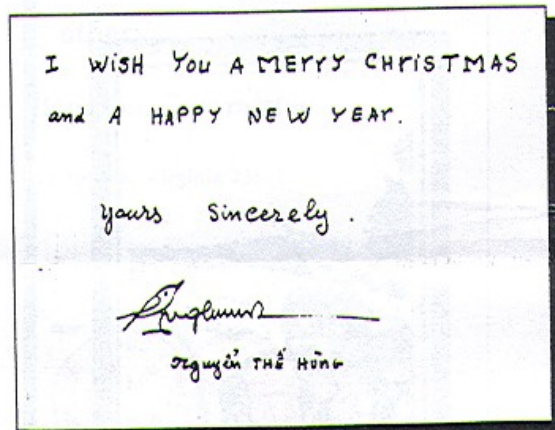 I WiSH You A MErrY CHriSTMAS
and A HAPPY NEW YEAr.
yours Sincerely.
Nguyễn THẾ HÙNG